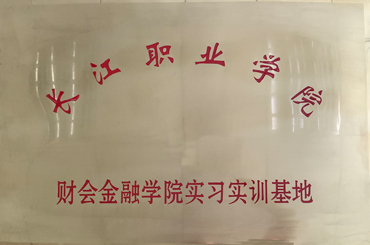 长江职业学院
财会金融学院实习实训基地